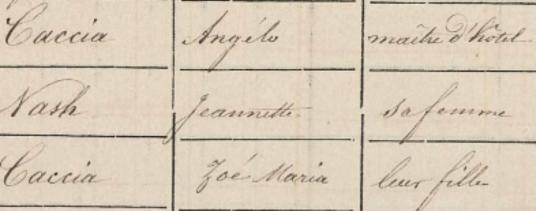 Caccia Angélo maître d'hôtel
Nash Jeannette sa femme
Caccia Zoé Maria leur fille